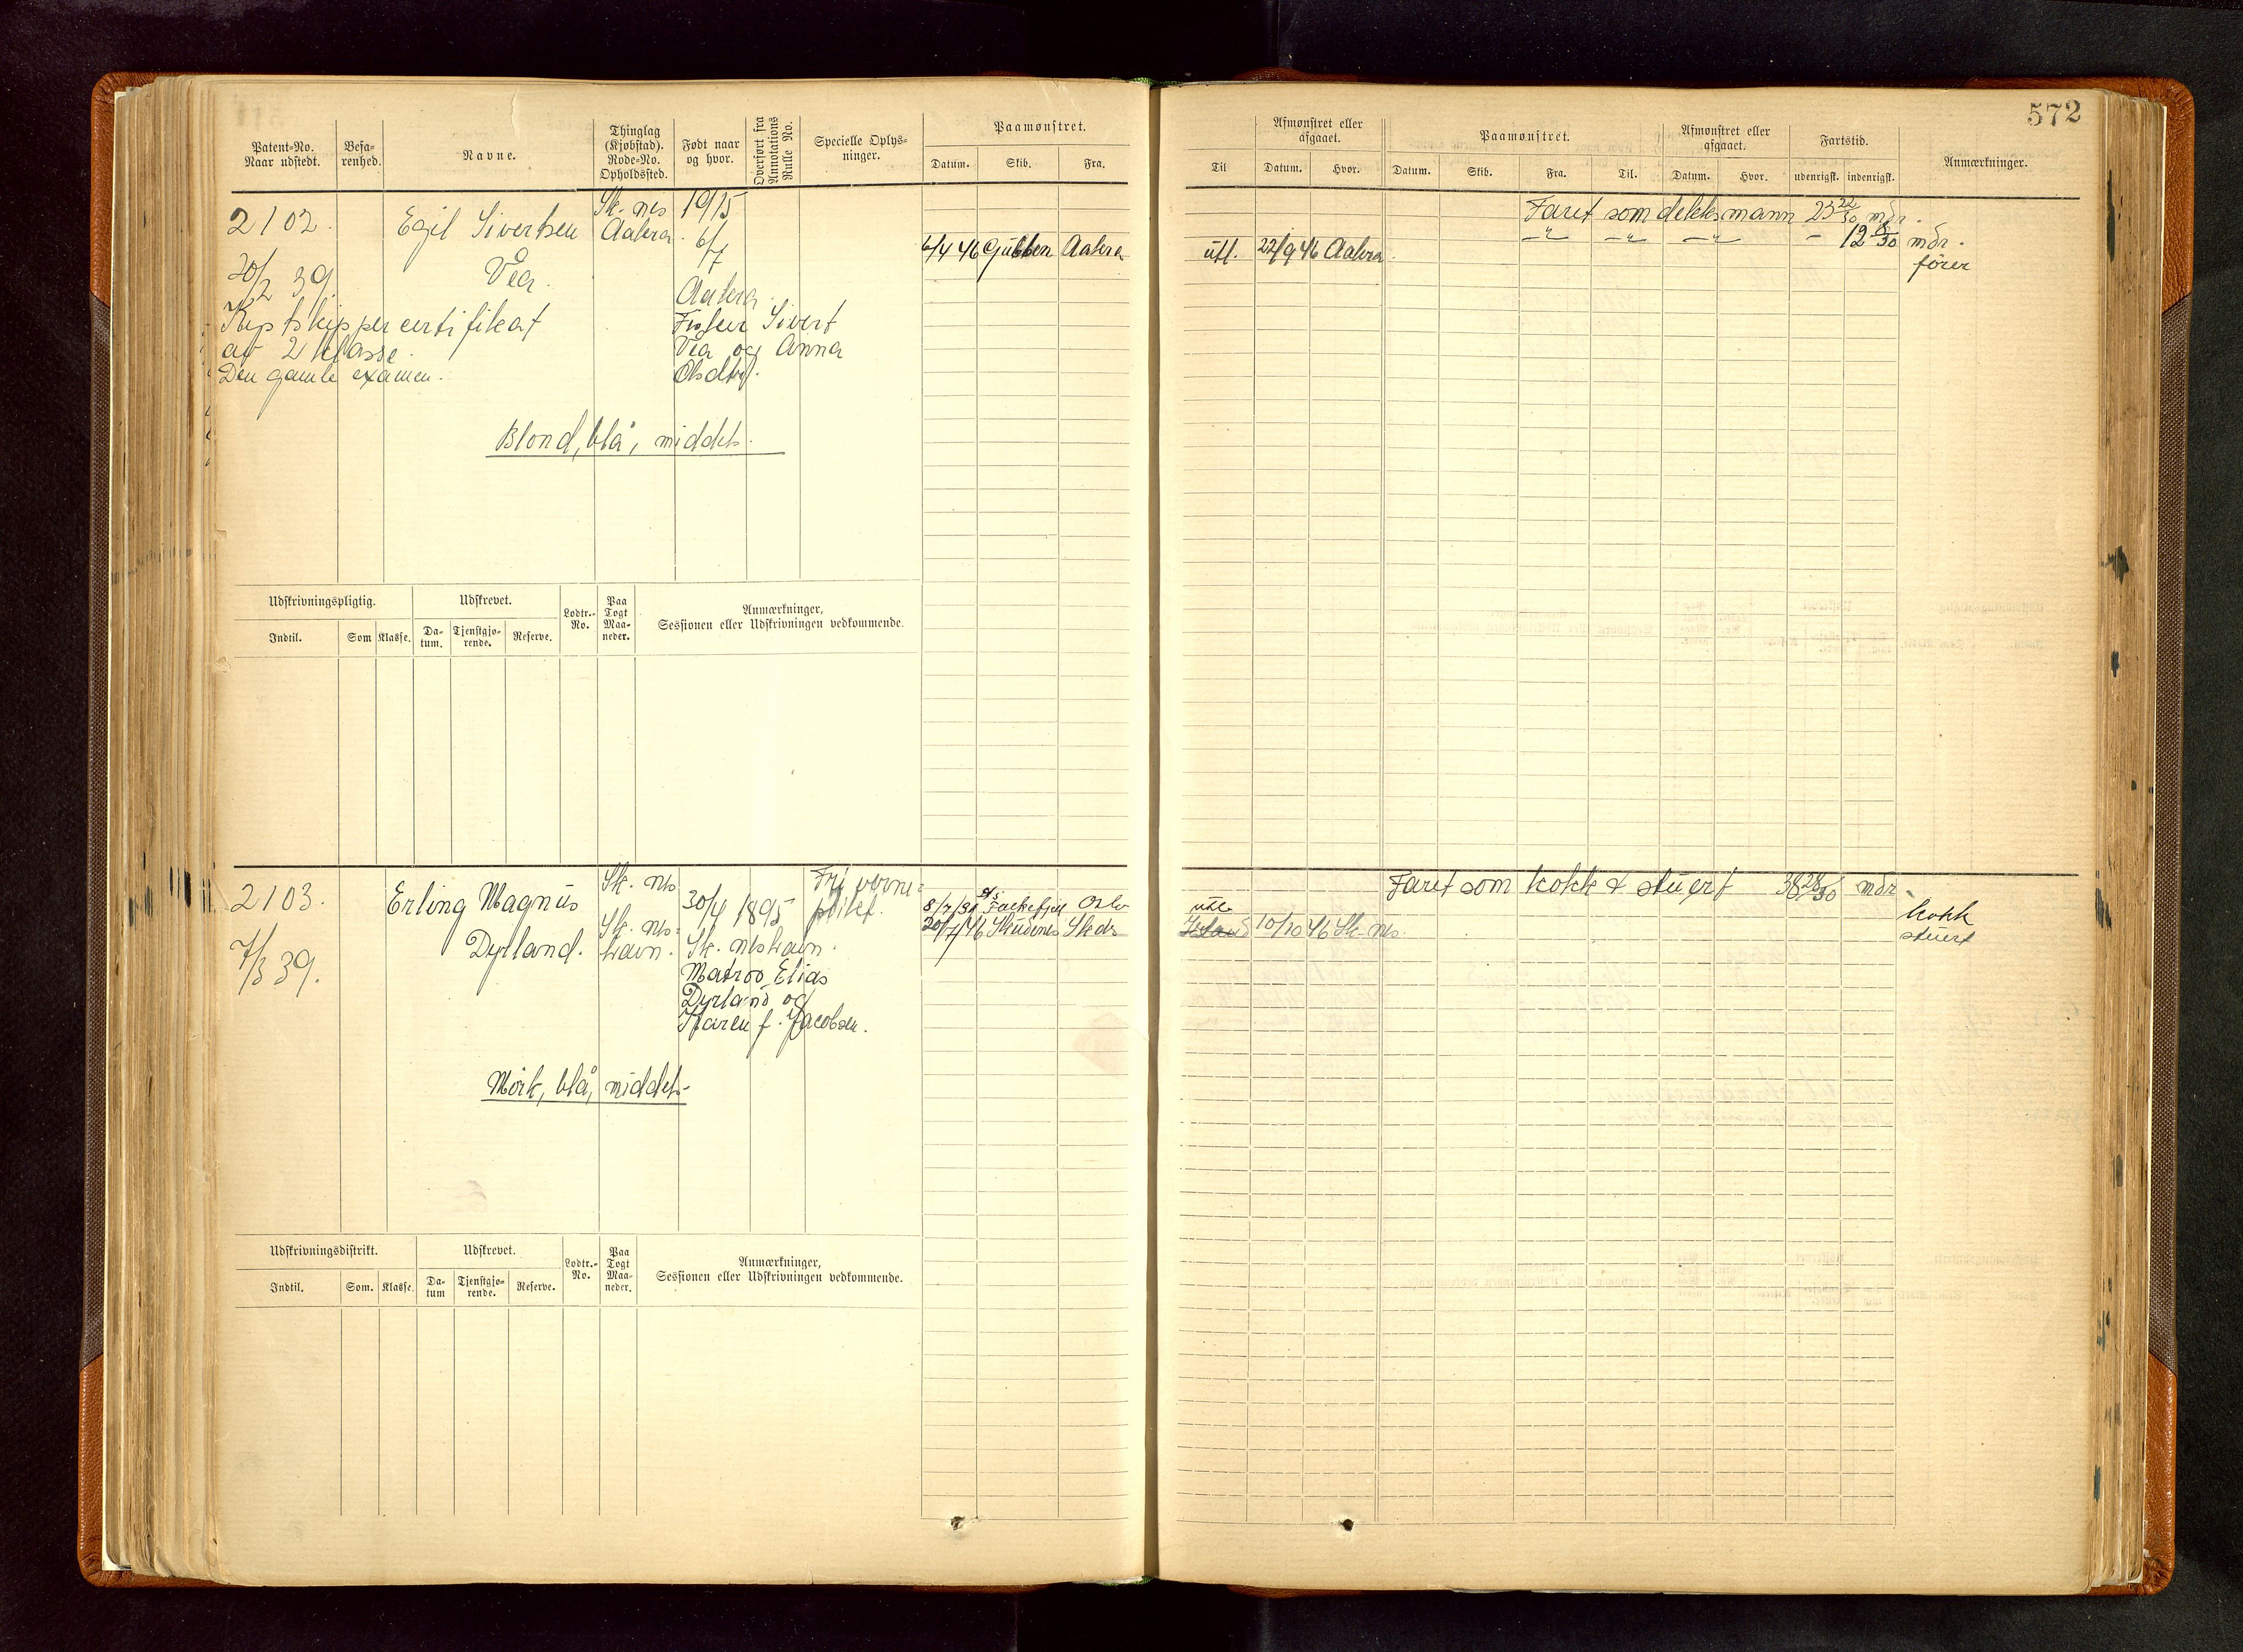 572
Patent-No. Naar udstedt.
Befarenhed.
Navne.
Thinglag (Kjøbstad). Rode-No. Opholdssted.
Født naar og hvor.
Overført fra Annotations Rulle No.
Specielle Oplysninger.
Paamønstret.
Datum.
Skib.
Fra.
Til
Afmønstret eller afgaaet.
Datum.
Hvor.
Paamønstret.
Datum.
Skib.
Fra.
Til.
Afmønstret eller afgaaet.
Datum.
Hvor.
Fartstid.
udenrigst.
indenrigst.
Anmærkninger.
2102.
20/2 39
Kystskippercertifikat
av 2 klasse.
Den gamle examen.
Egil Sivertsen
Vea.
Sk. nes
Aakra.
1915
6/7
Aakra.
Fisker Sivert
Vea og Anna
Olsdtr.
Blond, blå, middels.
6/4 46 Gubben Aakra
utl. 22/9 46 Aakra.
Faret som dekksmann 23 22/30 mdr.
12 8/30 mdr.
fører
Udskrivningspligtig.
Indtil.
Som
Klasse.
Udskrevet.
Datum.
Tjenstgjørende.
Reserve.
Lodtr.-No.
Paa Togt Maaneder.
Anmærkninger,
Sessionen eller Udskrivningen vedkommende.
2103.
7/3 39.
Erling Magnus
Dyrland.
Sk. nes
Sk. nes-
havn.
30/4 1895
Sk. neshavn.
Matros Elias
Dyrland og
Karen f. Jacobsen.
Fri verne-
pliket.
Mörk, blå, middels
8/7/39 d/s Falkefjell Oslo
20/7/46 Skudenes Skds
utl.
Island 10/10 46 Sk. nes.
Faret som kokk & stuert 38 28/30 mdr.
kokk
stuert
Udskrivningsdistrikt.
Indtil.
Som.
Klasse.
Udskrevet.
Datum
Tjenstgjørende.
Reserve.
Lodtr.-No.
Paa Togt Maaneder.
Anmærkninger,
Sessionen eller Udskrivningen vedkommende.